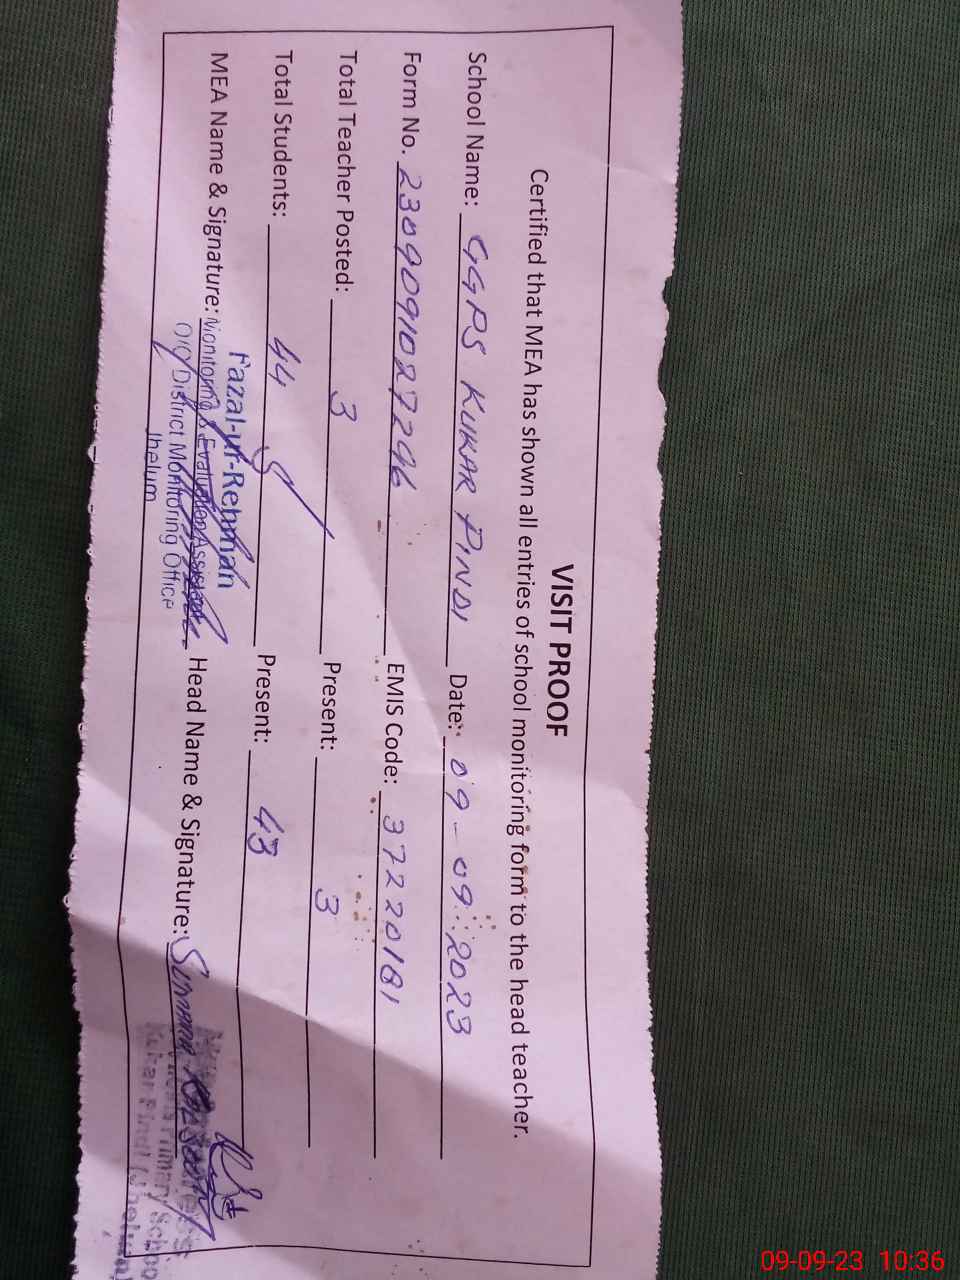 VISIT PROOF
Certified that MEA has shown all entries of school monitoring form to the head teacher.
School Name: GGPS KUKAR PINDI Date: 09-09-2023
Form No. 2309091027296 EMIS Code: 37220181
Total Teacher Posted: 3 Present: 3
Total Students: 44 Present: 43
MEA Name & Signature: Head Name & Signature:
Fazal-ur-Rehman
Monitoring & Evaluation Assistant
O/O District Monitoring Office
Jhelum
Primary School
Kukar Pindi (Jhelum)
09-09-23 10:36